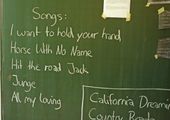 Songs:
I want to hold your hand
Horse With No Name
Hit the road Jack
Junge
All my loving
California Dreamin
Country Roads